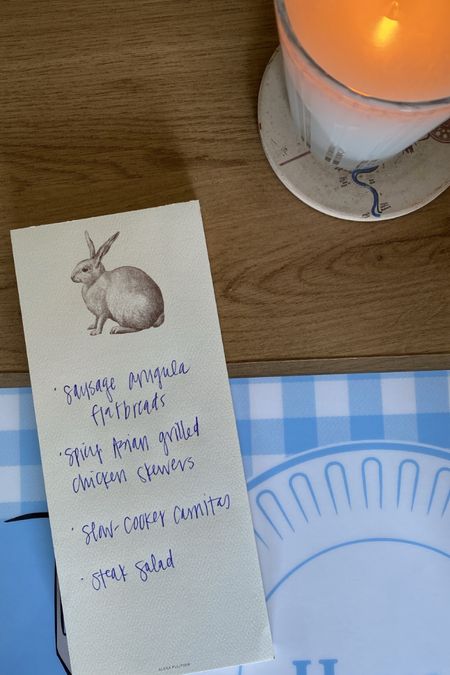 · Sausage arugula
flatbreads
· Spicy Asian grilled
chicken skewers
· Slow-cooker carnitas
· Steak salad
H